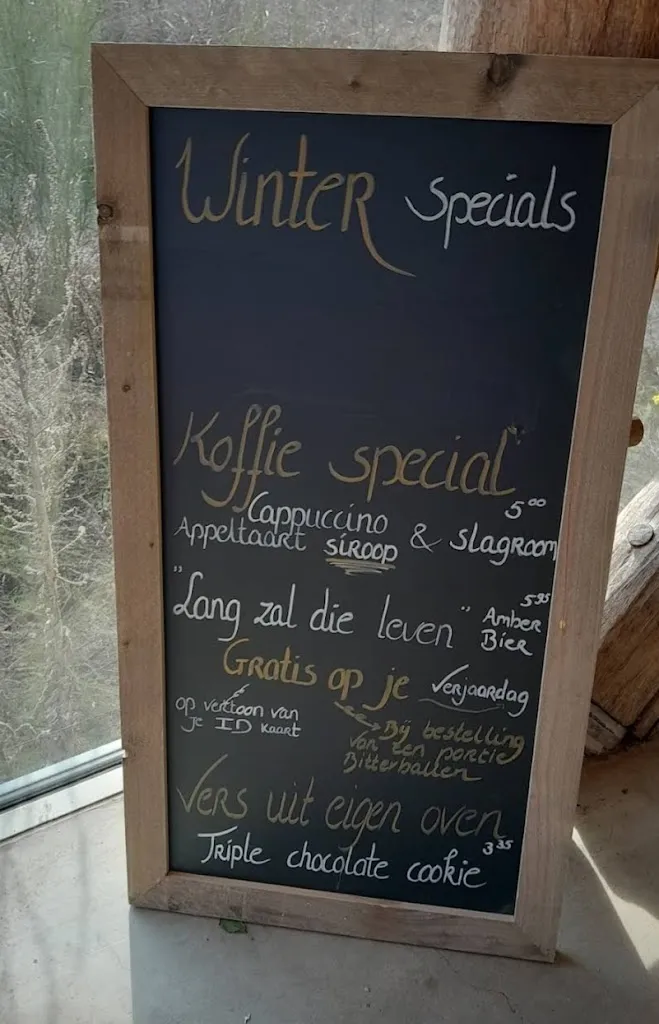 Winter Specials
Koffie special"
5,00
Cappuccino
Appeltaart siroop & slagroom
"Lang zal die leven" 5,95 Amber
Bier
Gratis op je verjaardag
op vertoon van
je ID kaart
Bij bestelling
van een portie
Bitterballen
Vers uit eigen oven
Triple chocolate cookie 3,35